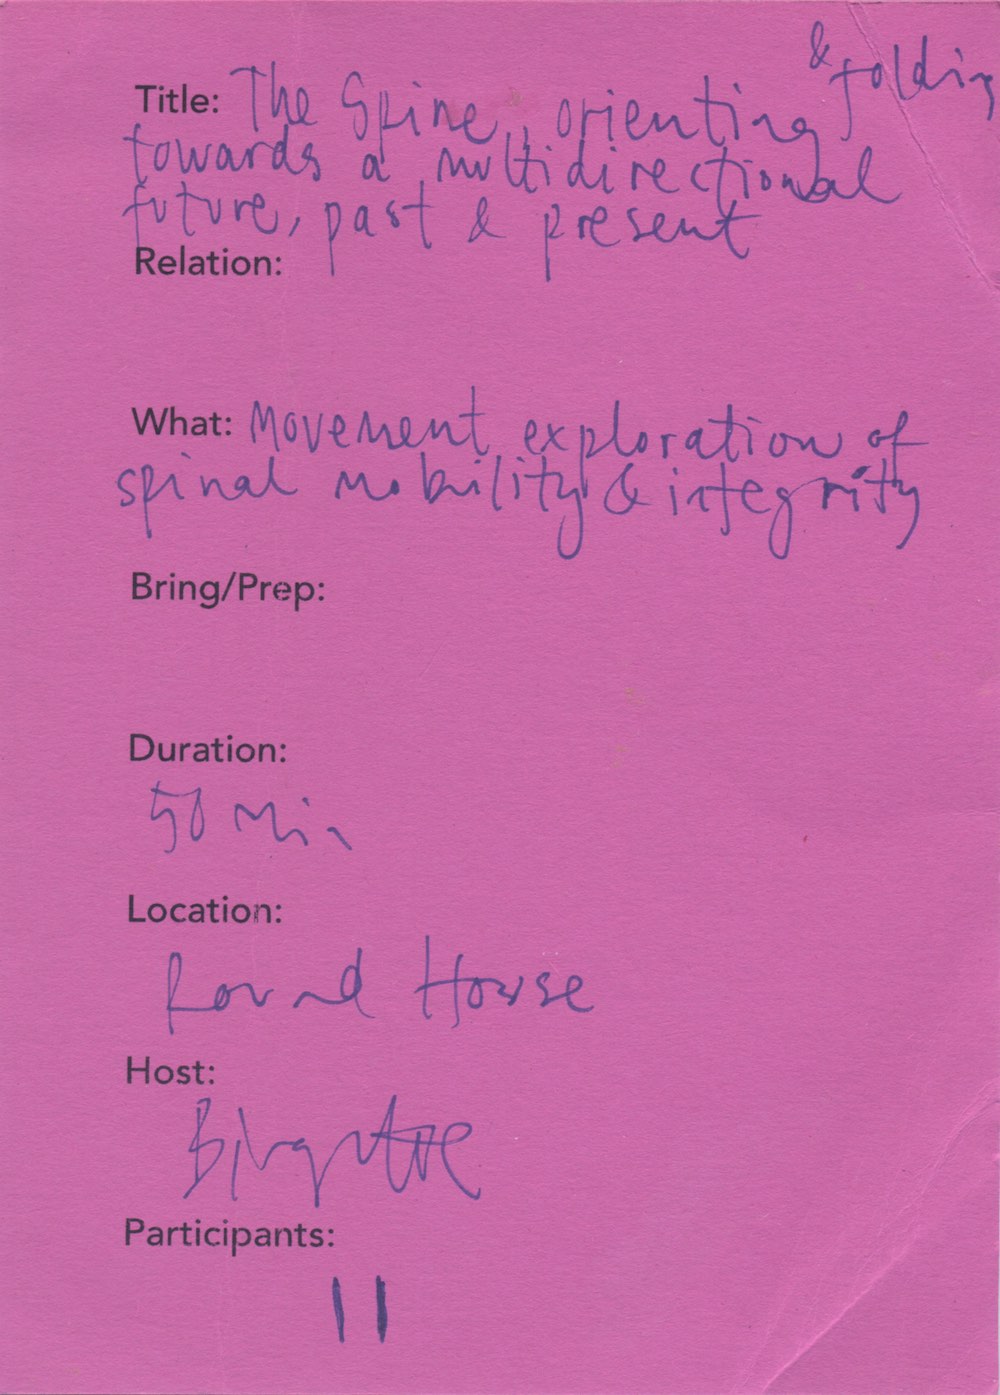 & folding
Title: The Spine, orienting
towards a multidirectional
future, past & present
Relation:
What: Movement exploration of
spinal mobility & integrity
Bring/Prep:
Duration:
50 Min
Location:
Round House
Host:
Birgitte
Participants:
11